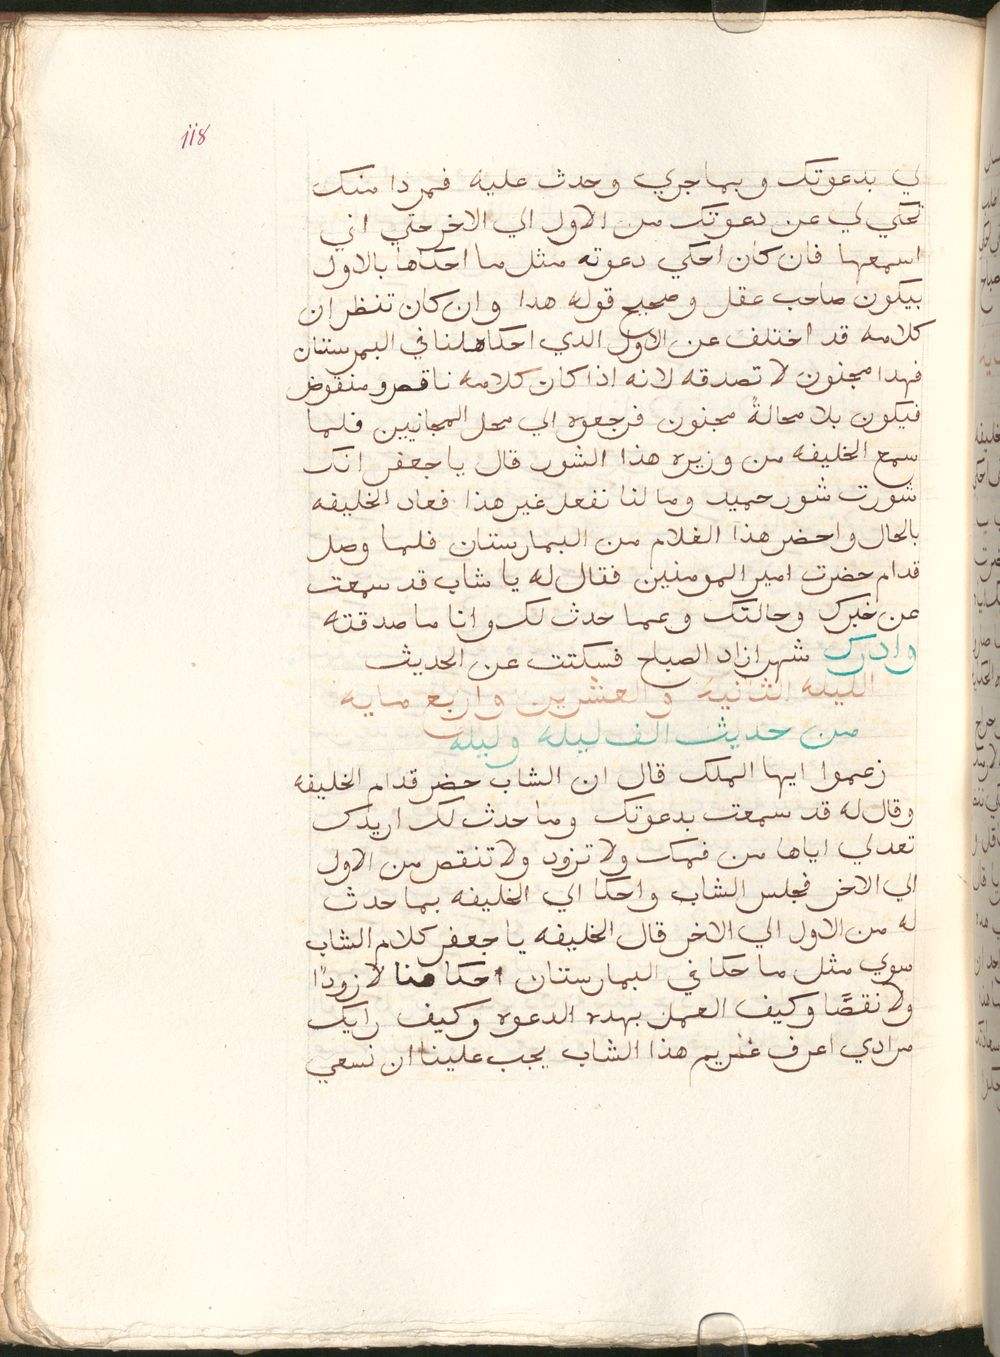 118
لي بدعوتك وبماجري وحدث عليه فمرادا منك
تحكي لي عن دعوتك من الاول الي الاخر حتي اني
اسمعها فان كان احكي دعوته مثل ما احكاها بالاول
بيكون صاحب عقل وصحيح قوله هدا وان كان تنظر ان
كلامه قد اختلف عن الاول الدي احكاه لنا في البمرستان
فهدا مجنون لا تصدقه لانه اذا كان كلامه ناقص ومنقوض
فيكون بلا محالةً مجنون فرجعوه الي محل المجانيين فلما
سمع الخليفه من وزيره هذا الشور قال يا جعفر انك
شورت شور حميد وما لنا نفعل غير هذا فعاد الخليفه
بالحال واحضر هذا الغلام من البمارستان فلما وصل
قدام حضرت امير المومنين فقال له يا شاب قد سمعت
عن خبرك وحالتك وعما حدث لك وانا ما صدقته
وادرك شهرازاد الصباح فسكتت عن الحديث
الليله الثانيه والعشرين واربع مايه
من حديث الف ليله وليله
زعموا ايها الملك قال ان الشاب حضر قدام الخليفه
وقال له قد سمعت بدعوتك وما حدث لك اريدك
تعد لي اياها من فمك ولا تزود ولا تنقص من الاول
الي الاخر فجلس الشاب واحكا الي الخليفه بما حدث
له من الاول الي الاخر قال الخليفه يا جعفر كلام الشاب
سوي مثل ما حكا في البمارستان احكا هنا لا زودًا
ولا نقصًا وكيف العمل بهده الدعوه وكيف رايك
مرادي اعرف غريم هذا الشاب يجب علينا ان نسعي